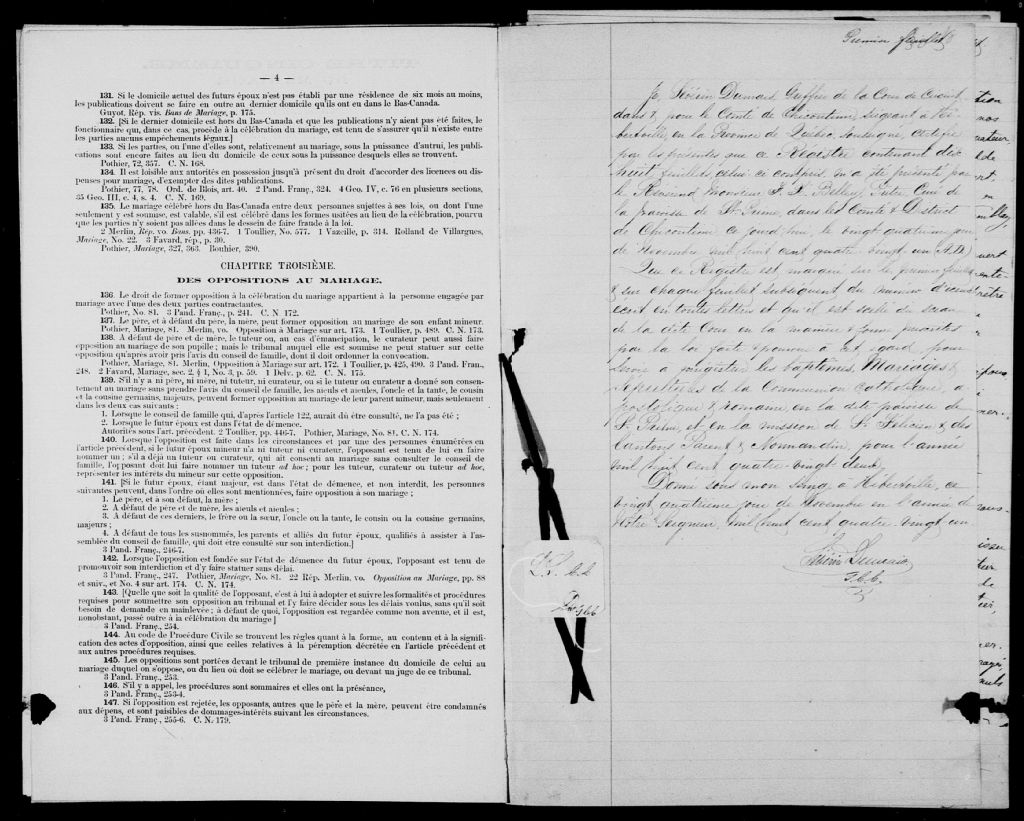 — 4 —
131. Si le domicile actuel des futurs époux n'est pas établi par une résidence de six mois au moins,
les publications doivent se faire en outre au dernier domicile qu'ils ont eu dans le Bas-Canada.
Guyot, Rép. vis. Bans de Mariage, p. 175.
132. [Si le dernier domicile est hors du Bas-Canada et que les publications n'y aient pas été faites, le
fonctionnaire qui, dans ce cas, procède à la célébration du mariage, est tenu de s'assurer qu'il n'existe entre
les parties aucuns empêchements légaux.]
133. Si les parties, ou l'une d'elles sont, relativement au mariage, sous la puissance d'autrui, les publi-
cations sont encore faites au lieu du domicile de ceux sous la puissance desquels elles se trouvent.
Pothier, 72, 357. C. N. 168.
134. Il est loisible aux autorités en possession jusqu'à présent du droit d'accorder des licences ou dis-
penses pour mariage, d'exempter des dites publications.
Pothier, 77, 78. Ord. de Blois, art. 40. 2 Pand. Franç., 324. 4 Geo. IV, c. 76 en plusieurs sections,
35 Geo. III, c. 4, s. 4. C. N. 169.
135. Le mariage célébré hors du Bas-Canada entre deux personnes sujettes à ses lois, ou dont l'une
seulement y est soumise, est valable, s'il est célébré dans les formes usitées au lieu de la célébration, pourvu
que les parties n'y soient pas allées dans le dessein de faire fraude à la loi.
2 Merlin, Rép. vo. Bans, pp. 436-7. 1 Toullier, No. 577. 1 Vazeille, p. 314. Rolland de Villargues,
Mariage, No. 22. 3 Favard, rép., p. 30.
Pothier, Mariage, 327, 363. Bouhier, 390.
CHAPITRE TROISIÈME.
DES OPPOSITIONS AU MARIAGE.
136. Le droit de former opposition à la célébration du mariage appartient à la personne engagée par
mariage avec l'une des deux parties contractantes.
Pothier, No. 81. 3 Pand. Franç., p. 241. C. N 172.
137. Le père, et à défaut du père, la mère, peut former opposition au mariage de son enfant mineur.
Pothier, Mariage, 81. Merlin, vo. Opposition à Mariage sur art. 173. 1 Toullier, p. 489. C. N. 173.
138. A défaut de père et de mère, le tuteur ou, au cas d'émancipation, le curateur peut aussi faire
opposition au mariage de son pupille; mais le tribunal auquel elle est soumise ne peut statuer sur cette
opposition qu'après avoir pris l'avis du conseil de famille, dont il doit ordonner la convocation.
Pothier, Mariage, 81. Merlin, Opposition à Mariage sur art. 172. 1 Toullier, p. 425, 490. 3 Pand. Fran.,
248. 2 Favard, Mariage, sec. 2, § 1, No. 3, p. 59. 1 Delv. p. 62. C. N. 175.
139. S'il n'y a ni père, ni mère, ni tuteur, ni curateur, ou si le tuteur ou curateur a donné son consen-
tement au mariage sans prendre l'avis du conseil de famille, les aïeuls et aïeules, l'oncle et la tante, le cousin
et la cousine germains, majeurs, peuvent former opposition au mariage de leur parent mineur, mais seulement
dans les deux cas suivants:
1. Lorsque le conseil de famille qui, d'après l'article 122, aurait dû être consulté, ne l'a pas été;
2. Lorsque le futur époux est dans l'état de démence.
Autorités sous l'art. précédent. 2 Toullier, pp. 446-7. Pothier, Mariage, No. 81, C. N. 174.
140. Lorsque l'opposition est faite dans les circonstances et par une des personnes énumérées en
l'article précédent, si le futur époux mineur n'a ni tuteur ni curateur, l'opposant est tenu de lui en faire
nommer un; s'il a déjà un tuteur ou curateur, qui ait consenti au mariage sans consulter le conseil de
famille, l'opposant doit lui faire nommer un tuteur ad hoc; pour les tuteur, curateur ou tuteur ad hoc,
représenter les intérêts du mineur sur cette opposition.
141. [Si le futur époux, étant majeur, est dans l'état de démence, et non interdit, les personnes
suivantes peuvent, dans l'ordre où elles sont mentionnées, faire opposition à son mariage;
1. Le père, et à son défaut, la mère;
2. A défaut de père et de mère, les aïeuls et aïeules;
3. A défaut de ces derniers, le frère ou la sœur, l'oncle ou la tante, le cousin ou la cousine germains,
majeurs;
4. A défaut de tous les susnommés, les parents et alliés du futur époux, qualifiés à assister à l'as-
semblée du conseil de famille, qui doit être consulté sur son interdiction.]
3 Pand. Franç., 246-7.
142. Lorsque l'opposition est fondée sur l'état de démence du futur époux, l'opposant est tenu de
promouvoir son interdiction et d'y faire statuer sans délai.
3 Pand. Franç., 247. Pothier, Mariage, No. 81. 22 Rép. Merlin, vo. Opposition au Mariage, pp. 88
et suiv., et No. 4 sur art. 174. C. N. 174.
143. [Quelle que soit la qualité de l'opposant, c'est à lui à adopter et suivre les formalités et procédures
requises pour soumettre son opposition au tribunal et l'y faire décider sous les délais voulus, sans qu'il soit
besoin de demande en mainlevée; à défaut de quoi, l'opposition est regardée comme non avenue, et il est,
nonobstant, passé outre à la célébration du mariage]
3 Pand. Franç., 254.
144. Au code de Procédure Civile se trouvent les règles quant à la forme, au contenu et à la signifi-
cation des actes d'opposition, ainsi que celles relatives à la péremption décrétée en l'article précédent et aux
autres procédures requises.
145. Les oppositions sont portées devant le tribunal de première instance du domicile de celui au
mariage duquel on s'oppose, ou du lieu où doit se célébrer le mariage, ou devant un juge de ce tribunal.
3 Pand. Franç., 253.
146. S'il y a appel, les procédures sont sommaires et elles ont la préséance,
3 Pand. Franç., 253-4.
147. Si l'opposition est rejetée, les opposants, autres que le père et la mère, peuvent être condamnés
aux dépens, et sont paisibles de dommages-intérêts suivant les circonstances.
3 Pand. Franç., 255-6. C. N. 179.
Premier feuillet
Je, Dumais, Greffier de la Cour de Circuit
dans & pour le Comté de Chicoutimi siégeant à Hé-
bertville en la Province de Québec, soussigné, certifie
par les présentes que ce Régistre contenant dix
huit feuillets celui-ci compris, m'a été présenté par
le Révérend Monsieur Prêtre Curé de
la paroisse de St. Prime, dans les Comté & District
de Chicoutimi ce jourd'hui, le vingt quatrième jour
de Novembre mil huit cent quatre vingt un A.D.
Que ce Régistre est marqué sur le premier feuillet
& sur chaque feuillet subséquent du numéro d'icelui
écrit en toutes lettres et qu'il est scellé du sceau
de la dite Cour en la manière & forme prescrites
par la loi faite & pourvue à cet égard, pour
servir à enregistrer les Baptêmes, Mariages &
Sépultures de la Communion catholique, a-
postolique & romaine en la dite paroisse de
St. Prime, et en la mission de St. Félicien & des
Cantons Parent & Normandin, pour l'année
mil huit cent quatre-vingt deux.
Donné sous mon seing à Hébertville, ce
vingt quatrième jour de Novembre en l'année de
Notre Seigneur, mil huit cent quatre vingt un.
Dumais
G.C.C.